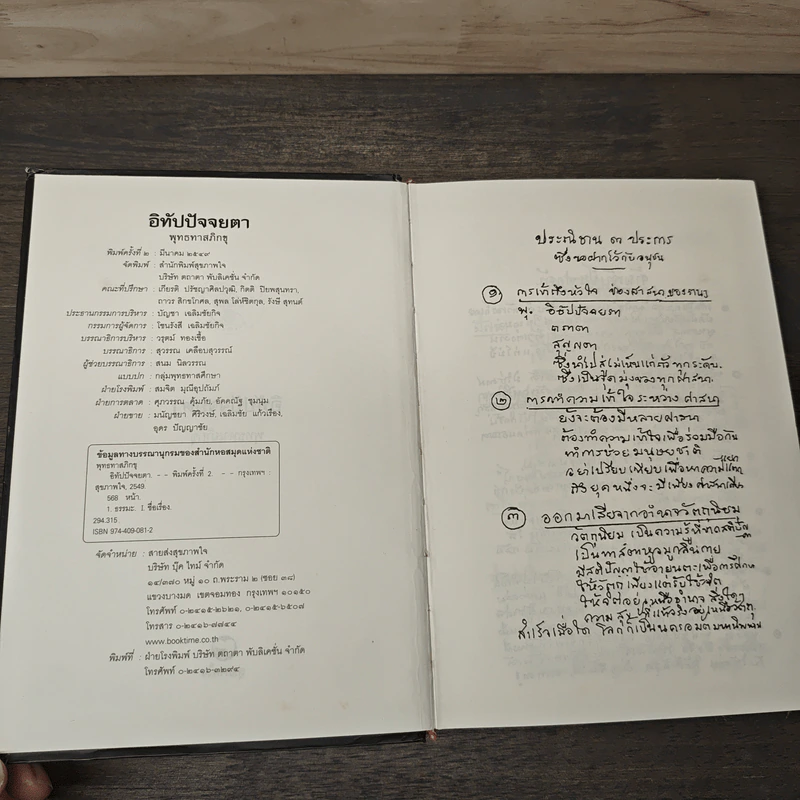 อิทัปปัจจยตา
พุทธทาสภิกขุ
พิมพ์ครั้งที่ ๒ : มีนาคม ๒๕๔๙
จัดพิมพ์ : สำนักพิมพ์สุขภาพใจ
บริษัท ตถาตา พับลิเคชั่น จำกัด
คณะที่ปรึกษา : เกียรติ ปรัชญาศิลปวุฒิ, กิตติ ปิยพสุนทรา,
ถาวร สิกขโกศล, สุพล โล่ห์ชิตกุล, รังษี สุทนต์
ประธานกรรมการบริหาร : บัญชา เฉลิมชัยกิจ
กรรมการผู้จัดการ : โชนรังสี เฉลิมชัยกิจ
บรรณาธิการบริหาร : วรุตม์ ทองเชื้อ
บรรณาธิการ : สุวรรณ เคลือบสุวรรณ์
ผู้ช่วยบรรณาธิการ : สนม นิลวรรณ
แบบปก : กลุ่มพุทธทาสศึกษา
ฝ่ายโรงพิมพ์ : สมจิต มุณีอุปถัมภ์
ฝ่ายการตลาด : ศุภวรรณ คุ้มภัย, อัคคณัฐ ชุมนุม
ฝ่ายขาย : มนัญชยา ศิริวงษ์, เฉลิมชัย แก้วเรือง,
อุดร ปัญญาชัย
ข้อมูลทางบรรณานุกรมของสำนักหอสมุดแห่งชาติ
พุทธทาสภิกขุ
อิทัปปัจจยตา. - - พิมพ์ครั้งที่ 2. - - กรุงเทพฯ :
สุขภาพใจ, 2549.
568 หน้า.
1. ธรรมะ. I. ชื่อเรื่อง.
294.315
ISBN 974-409-081-2
จัดจำหน่าย : สายส่งสุขภาพใจ
บริษัท บุ๊ค ไทม์ จำกัด
๑๔/๓๗๐ หมู่ ๑๐ ถ.พระราม ๒ (ซอย ๓๘)
แขวงบางมด เขตจอมทอง กรุงเทพฯ ๑๐๑๕๐
โทรศัพท์ ๐-๒๔๑๕-๒๖๒๑, ๐-๒๔๑๕-๖๕๐๗
โทรสาร ๐-๒๔๑๖-๗๗๔๔
www.booktime.co.th
พิมพ์ที่ : ฝ่ายโรงพิมพ์ บริษัท ตถาตา พับลิเคชั่น จำกัด
โทรศัพท์ ๐-๒๔๑๖-๓๒๙๔
ประณิธาน ๓ ประการ
ซึ่งขอฝากไว้กับอนุชน
๑ การเข้าถึงหัวใจ ของศาสนาของตนๆ
พุ. อิทัปปัจจยตา
ตถาตา
สุญญตา
ซึ่งทำไปสู่ไม่เห็นแก่ตัวทุกระดับ.
ซึ่งเป็นจุดมุ่งของทุกศาสนา.
๒ การทำความเข้าใจ ระหว่าง ศาสนา
ยังจะต้องมีหลายศาสนา
ต้องทำความเข้าใจเพื่อร่วมมือกัน
ทำการช่วยมนุษยชาติ
อย่าเปรียบเทียบเพื่อหาความ
ถึงยุคหนึ่งจะมีเพียงศาสนาเดียว
๓ ออกมาเสียจากอำนาจวัตถุนิยม
วัตถุนิยม เป็นความรู้ที่ขาดสติปัญญา
เป็นทาสตาหูจมูกลิ้นกาย
มีสติปัญญาใช้อายตนะเพื่อการศึกษา
ให้วัตถุเพียงแต่รับใช้จิต
ให้จิตอยู่เหนืออำนาจสิ่งใดๆ
ความสุขที่แท้จริงอยู่เหนือวัตถุ
สำเร็จเมื่อใด โลกก็เป็น